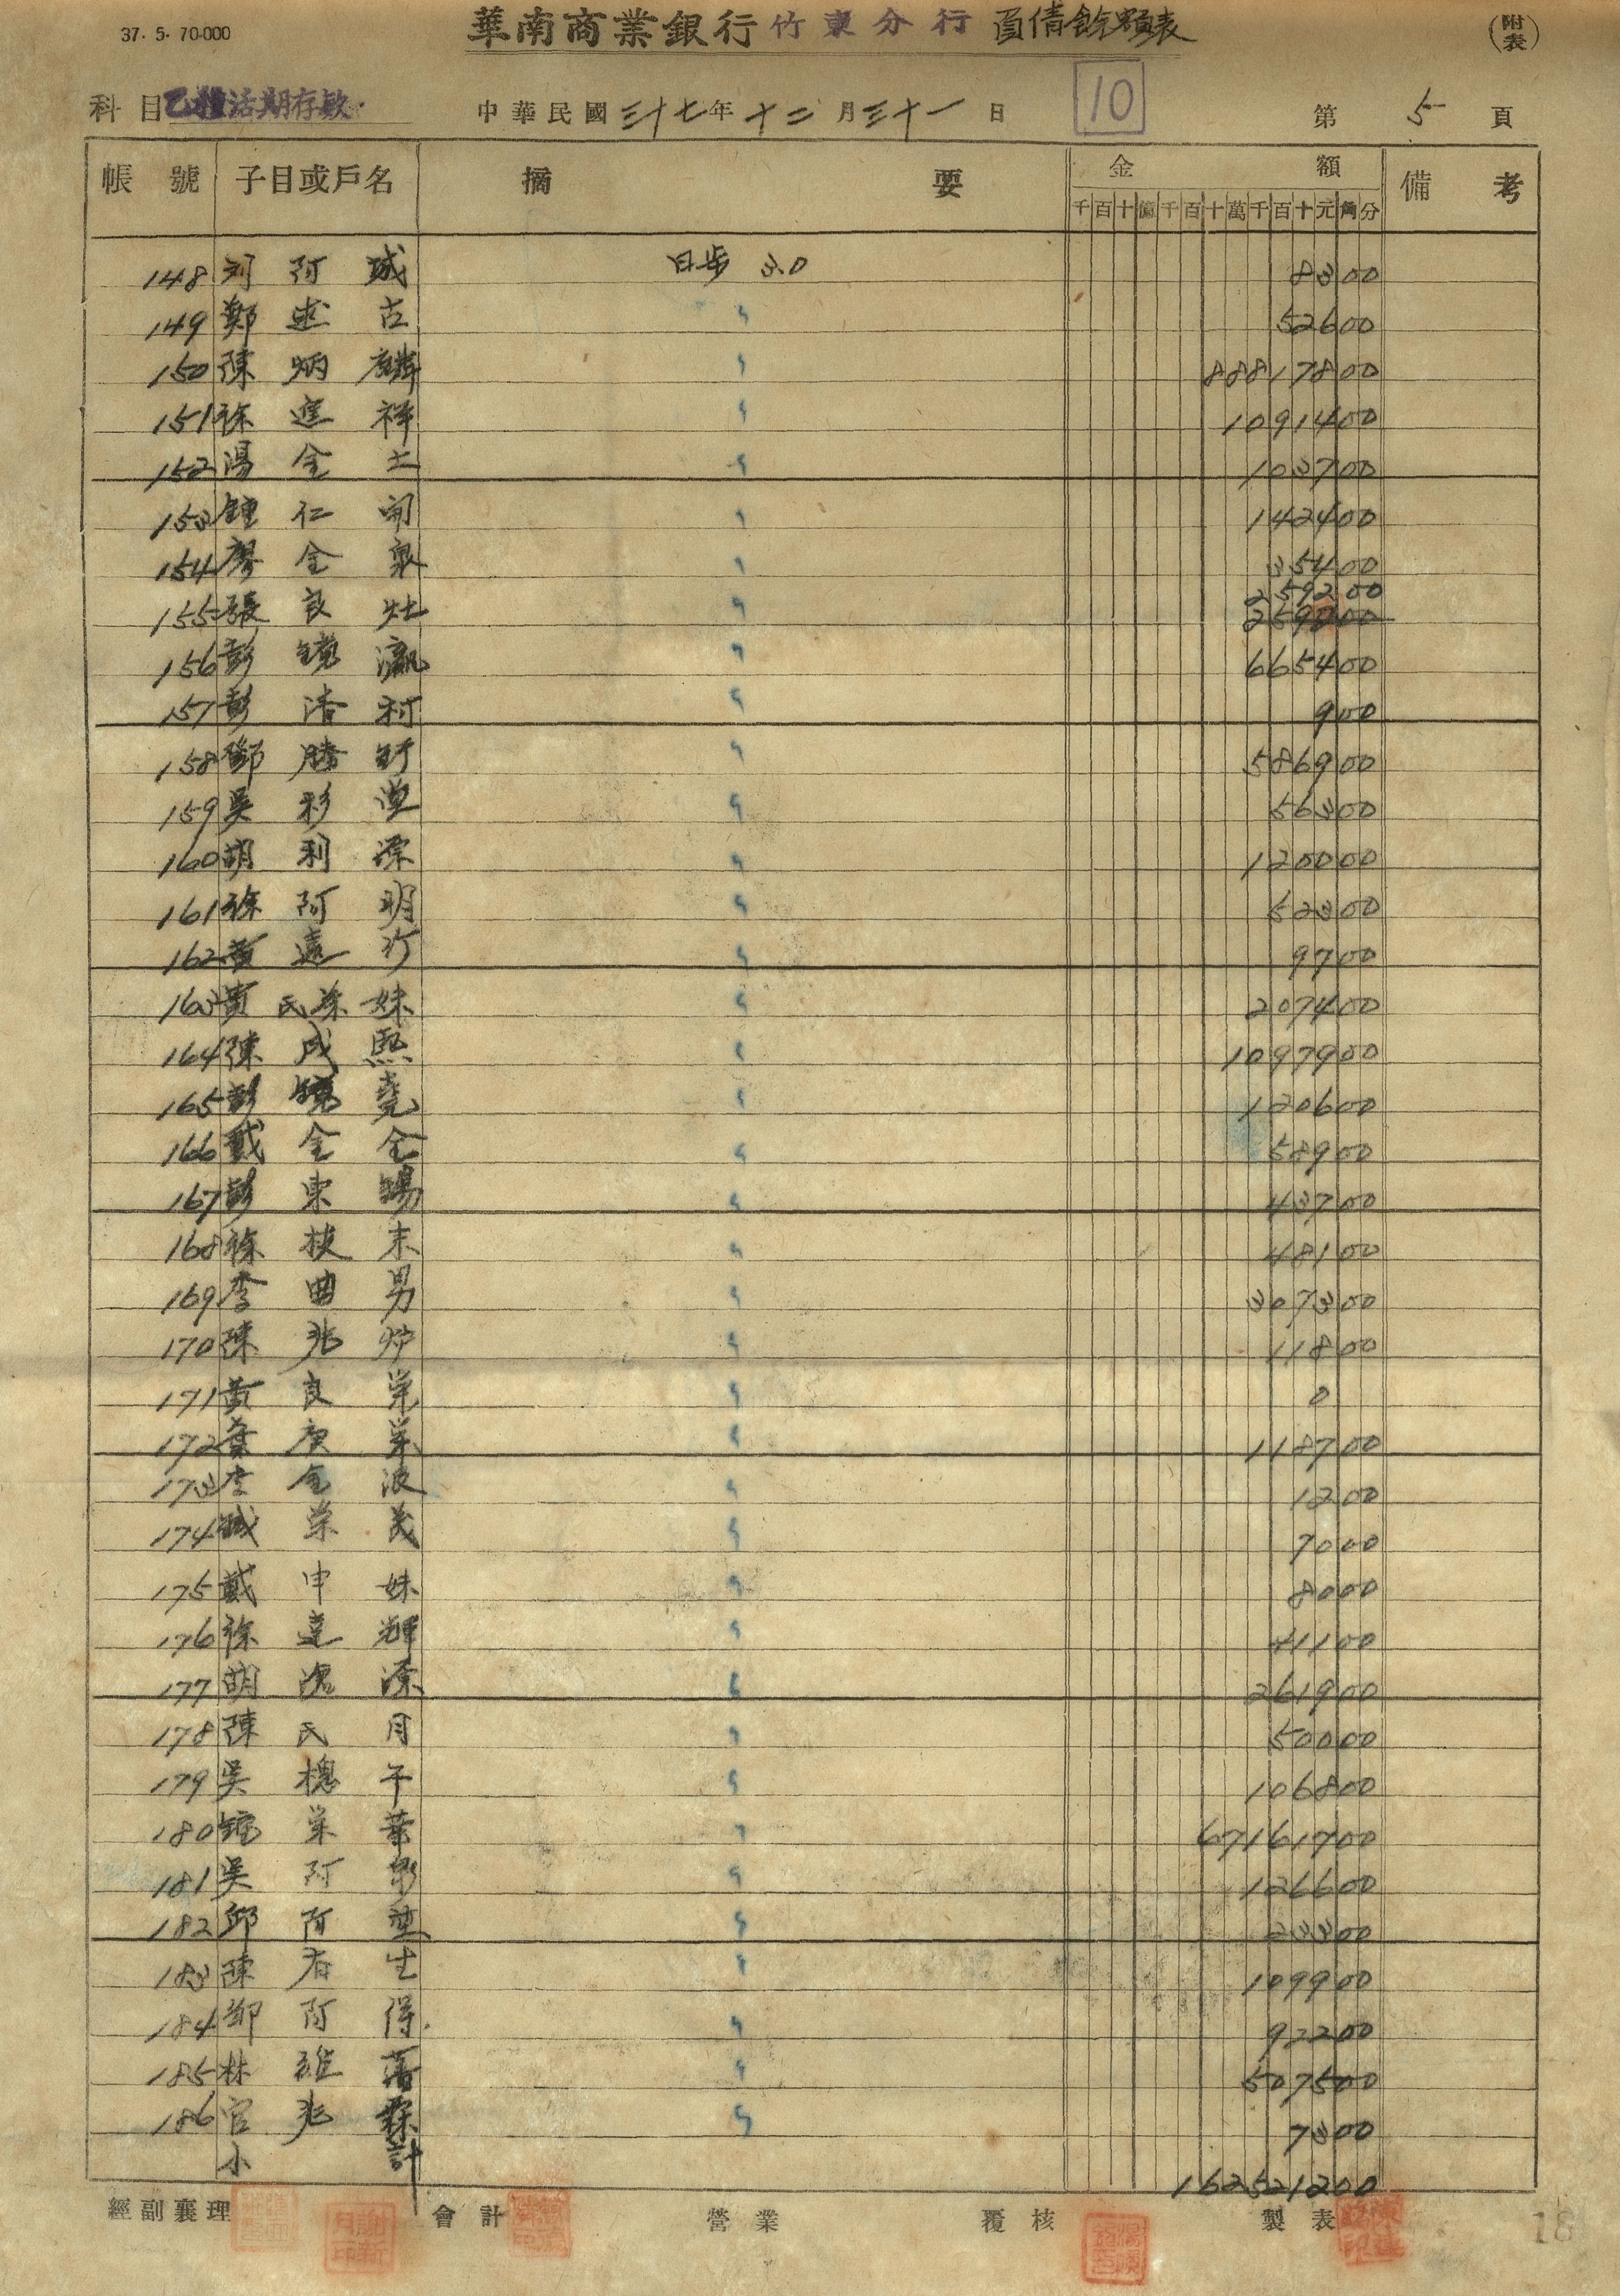 37. 5. 70.000
華南商業銀行 竹東分行 負債餘額表
(附表)
科目 乙種活期存款
中華民國三十七年十二月三十一日
10
第 5 頁
帳號 子目或戶名 摘要 金額 備考
千百十億千百十萬千百十元角分
148 刘阿城 日步 3.0 8300
149 鄭述古 〃 52600
150 陳炳麟 〃 88817800
151 徐進祥 〃 1091400
152 湯金土 〃 103700
153 鍾仁開 〃 142400
154 廖金泉 〃 35400
259200
155 張良灶 〃
156 彭鏡瀛 〃 665400
157 彭清 〃 900
158 鄧勝 〃 586900
159 吳彩 〃 56300
160 胡利源 〃 120000
161 徐阿明 〃 52300
162 黃遠 〃 9700
163 黃氏 妹 〃 207400
164 陳成熙 〃 1097900
165 彭鏡堯 〃 120600
166 戴金全 〃 58900
167 彭東錫 〃 43700
168 徐 末 〃 48100
169 李曲男 〃 307300
170 陳兆炉 〃 11800
171 黃良栄 〃 0
172 葉庚栄 〃 118700
173 李金波 〃 1200
174 栄茂 〃 7000
175 戴申妹 〃 8000
176 徐達輝 〃 41100
177 胡滄源 〃 261900
178 陳氏月 〃 50000
179 吳 午 〃 106800
180 栄華 〃 67161700
181 吳阿 〃 126600
182 邱阿 〃 23300
183 陳春生 〃 109900
184 鄧阿得 〃 92200
185 林 〃 507500
186 官兆霖 〃 7300
小計 162521200
經副襄理 會計 營業 覆核 製表
18